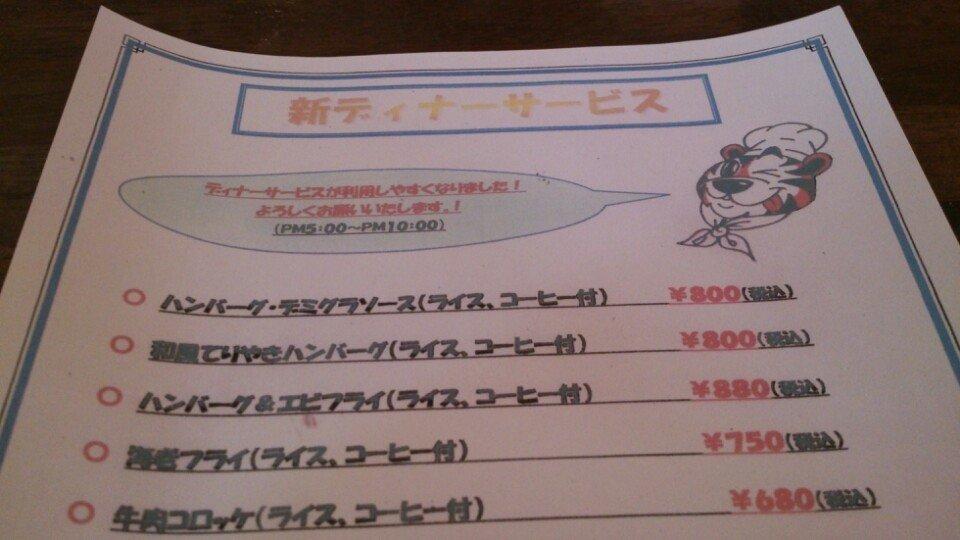 新ディナーサービス
ディナーサービスが利用しやすくなりました！
よろしくお願いいたします。！
(PM5:00〜PM10:00)
○ ハンバーグ・デミグラソース(ライス、コーヒー付) ¥800(税込)
○ 和風てりやきハンバーグ(ライス、コーヒー付) ¥800(税込)
○ ハンバーグ&エビフライ(ライス、コーヒー付) ¥880(税込)
○ 海老フライ(ライス、コーヒー付) ¥750(税込)
○ 牛肉コロッケ(ライス、コーヒー付) ¥680(税込)